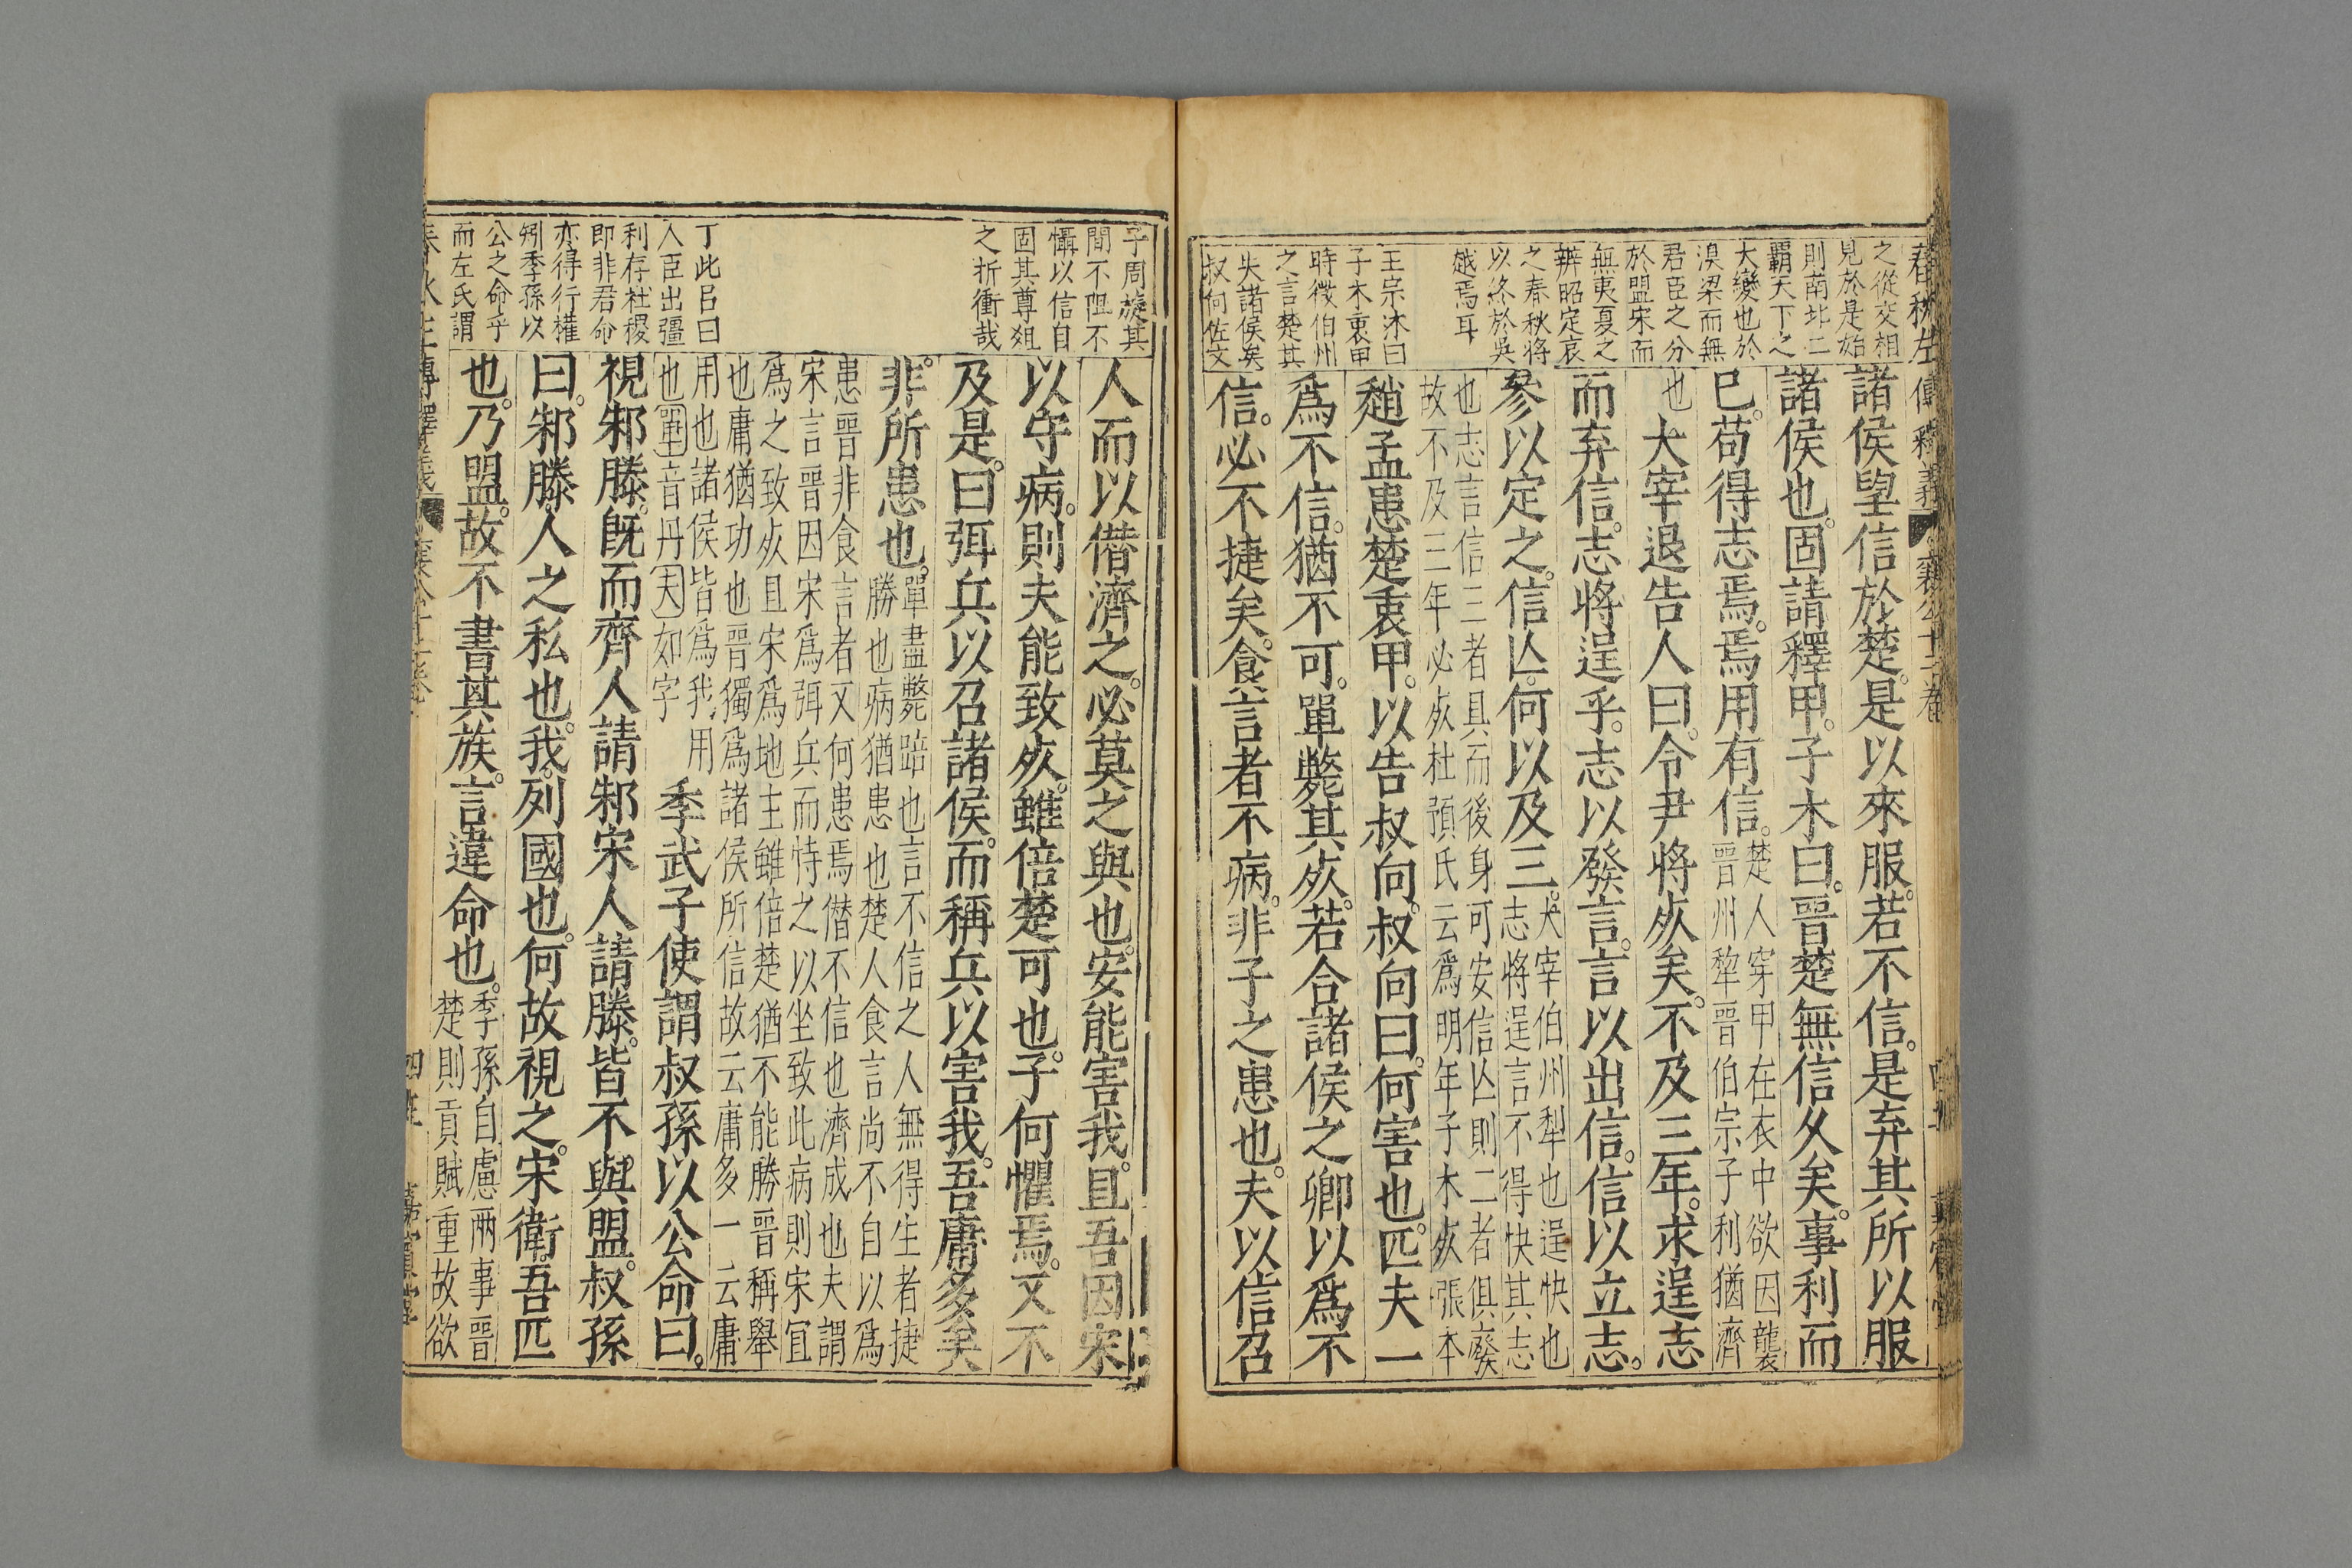 春秋左傳釋義
襄公十二卷
之從交相
見於是始
則南北二
霸天下之
大變也於
溴梁而無
君臣之分
於盟宋而
無夷夏之
辨昭定哀
之春秋將
以終於吳
越焉耳
王宗沐曰
子木衷甲
時微伯州
之言楚其
失諸侯矣
叔何佐文
諸侯望信於楚是以來服若不信是弃其所以服
諸侯也固請釋甲子木曰晉楚無信久矣事利而
已苟得志焉焉用有信
楚人穿甲在衣中欲因襲
晉州犂晉伯宗子利猶濟
也
大宰退告人曰令尹將死矣不及三年求逞志
而弃信志將逞乎志以發言言以出信信以立志
參以定之信亾何以及三
大宰伯州犁也逞快也
志將逞言不得快其志
也志言信三者具而後身可安信亾則二者俱廢
故不及三年必死杜預氏云爲明年子木死張本
趙孟患楚衷甲以告叔向叔向曰何害也匹夫一
爲不信猶不可單斃其死若合諸侯之卿以爲不
信必不捷矣食言者不病非子之患也夫以信召
子周旋其
間不阻不
懾以信自
固其尊俎
之折衝哉
丁此呂曰
人臣出彊
利存社稷
即非君命
亦得行權
矧季孫以
公之命乎
而左氏謂
人而以僭濟之必莫之與也安能害我且吾因宋
以守病則夫能致死雖倍楚可也子何懼焉又不
及是曰弭兵以召諸侯而稱兵以害我吾庸多矣
非所患也
單盡斃踣也言不信之人無得生者捷
勝也病猶患也楚人食言尚不自以爲
患晉非食言者又何患焉僭不信也濟成也夫謂
宋言晉因宋爲弭兵而恃之以坐致此病則宋宜
爲之致死且宋爲地主雖倍楚猶不能勝晉稱舉
也庸猶功也晉獨爲諸侯所信故云庸多一云庸
用也諸侯皆爲我用
也單音丹夫如字
季武子使謂叔孫以公命曰
視邾滕既而齊人請邾宋人請滕皆不與盟叔孫
曰邾滕人之私也我列國也何故視之宋衛吾匹
也乃盟故不書其族言違命也
季孫自慮两事晉
楚則貢賦重故欲